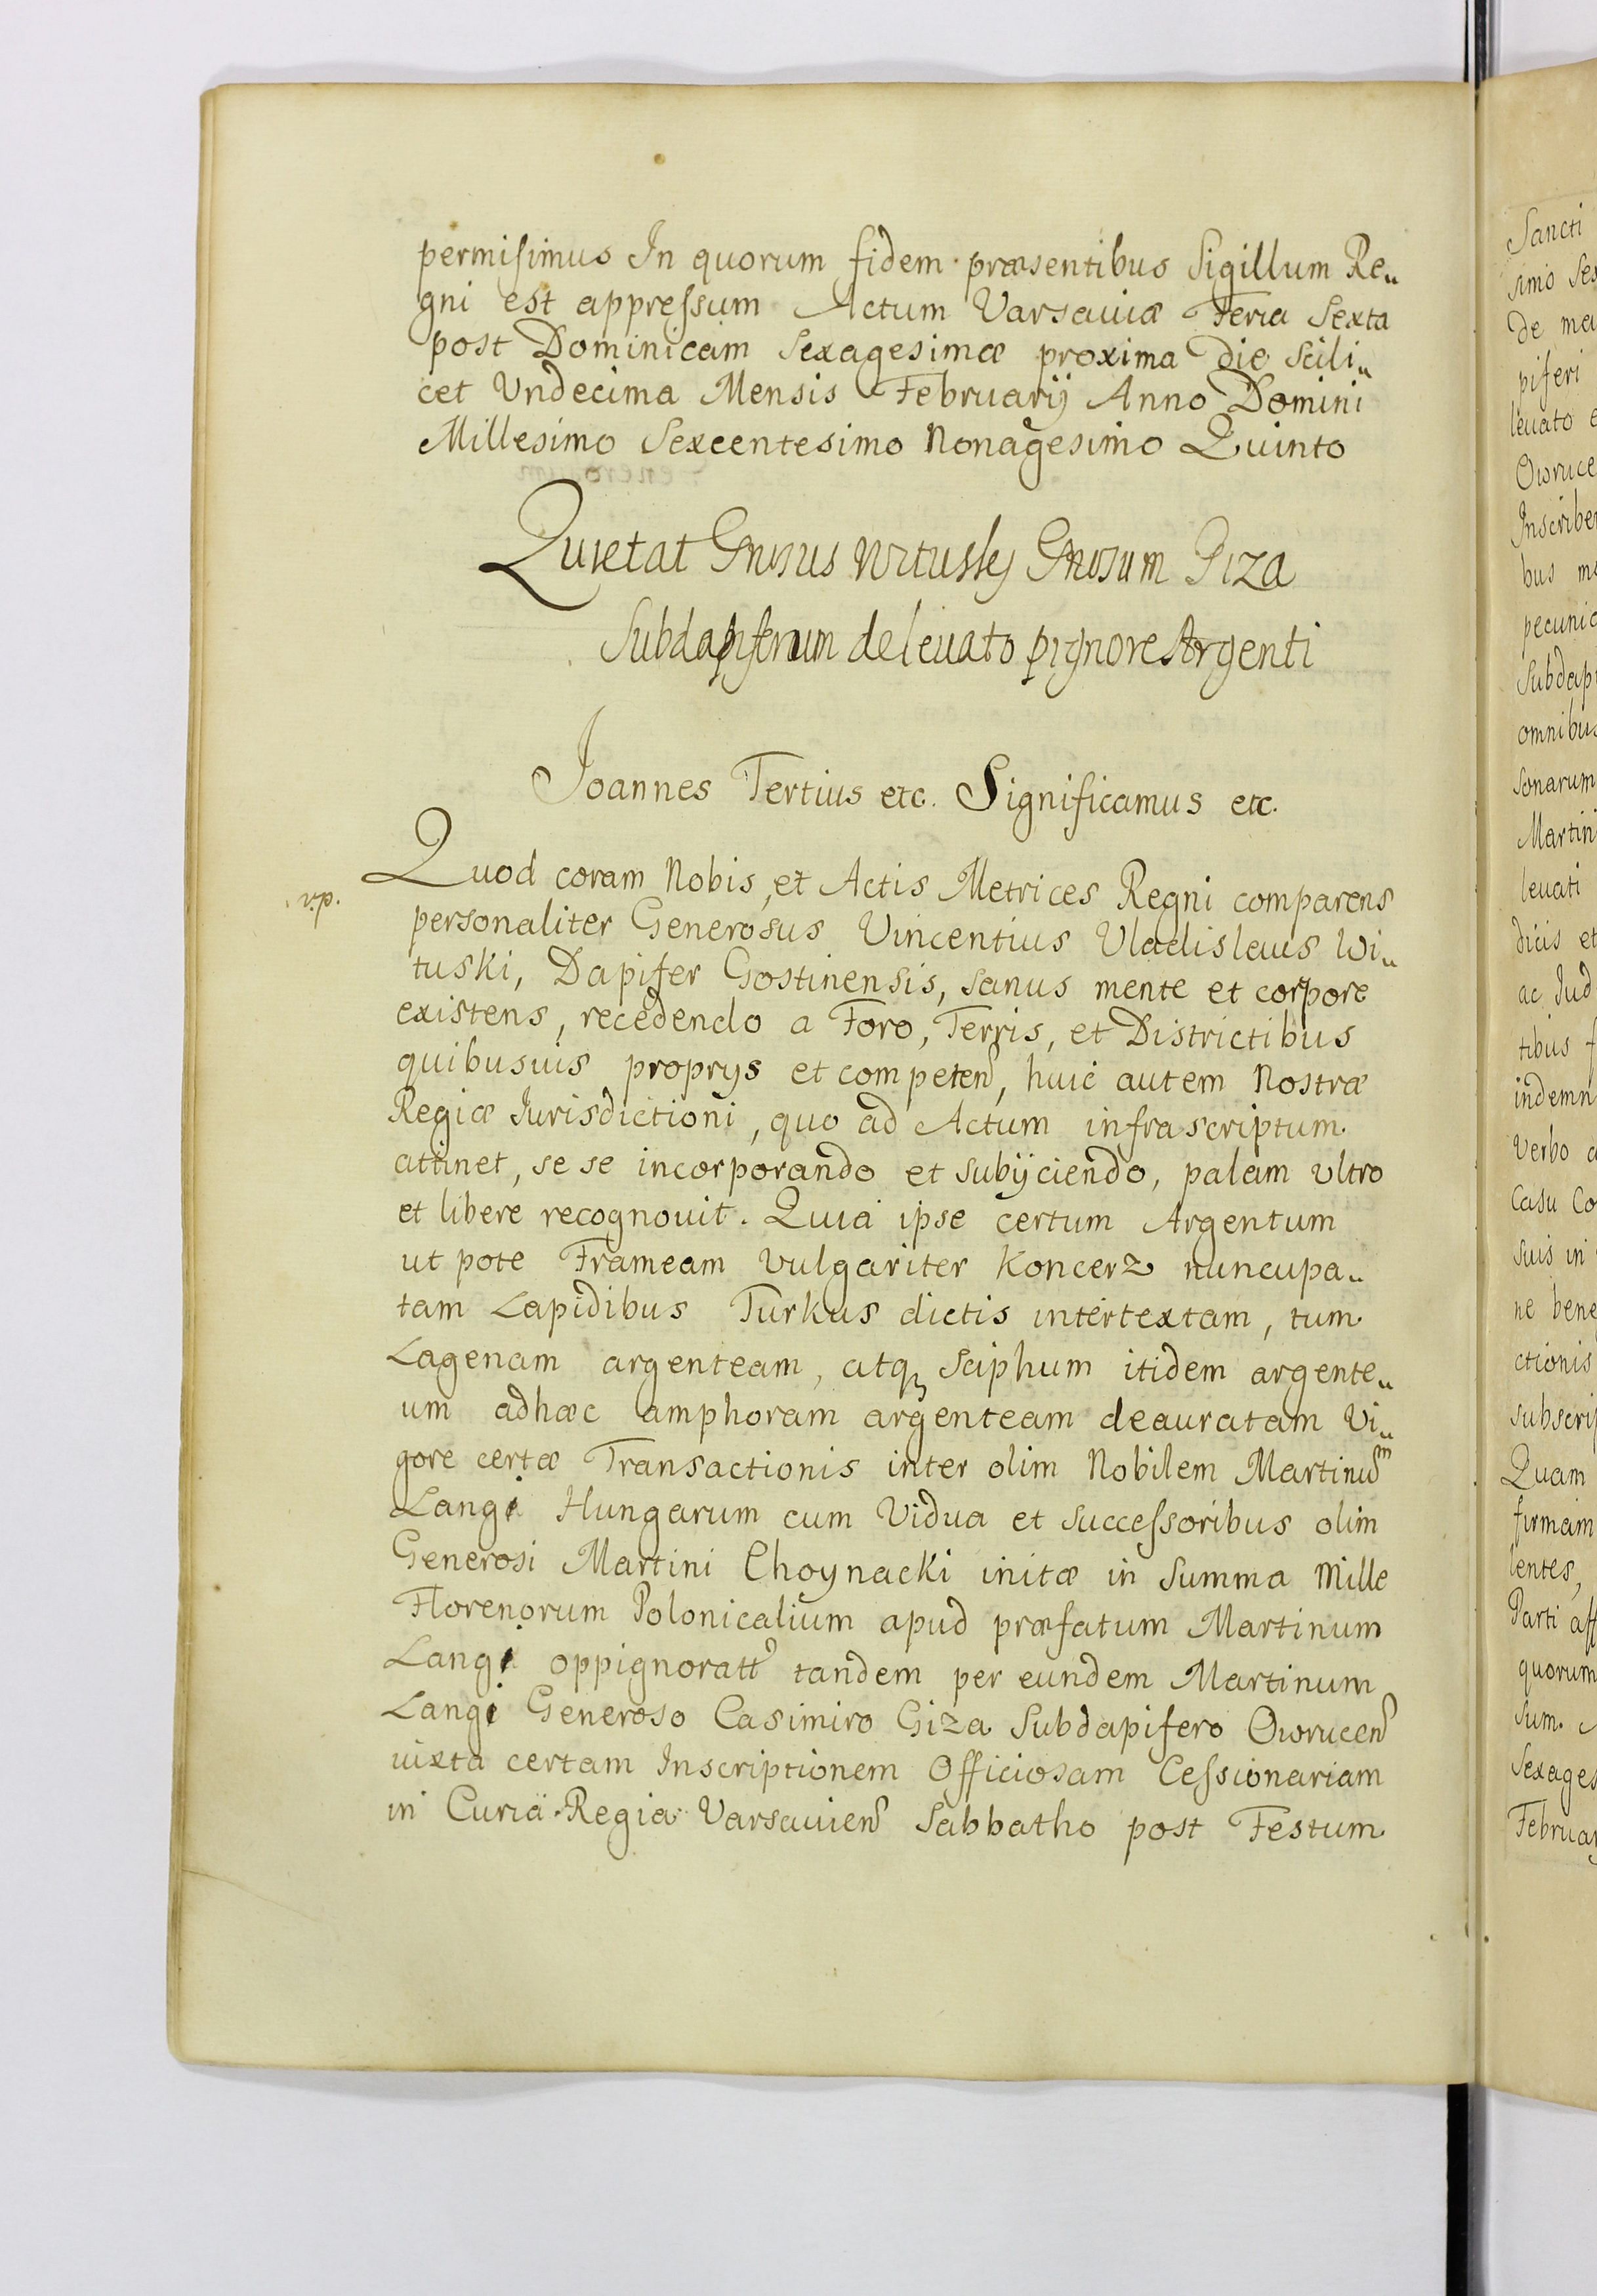 permisimus In quorum fidem præsentibus Sigillum Re„
gni est appressum Actum Varsaviæ Feria Sexta
post Dominicam Sexagesimæ proxima Die Scili„
cet Undecima Mensis Februarij Anno Domini
Millesimo Sexcentesimo Nonagesimo Quinto
Quietat Gnosus Witussky Gnosum Giza
Subdapiferum de levato pignore Argenti
Joannes Tertius etc. Significamus etc.
Quod coram Nobis, et Actis Metrices Regni comparens
personaliter Generosus Vincentius Vladislaus Wi„
tuski, Dapifer Gostinensis, sanus mente et corpore
existens, recedendo a Foro, Terris, et Districtibus
quibusuis proprys et competen, huic autem Nostræ
Regiæ Jurisdictioni, quo ad Actum infrascriptum
attinet, se se incorporando et subijciendo, palam ultro
et libere recognovit. Quia ipse certum Argentum
ut pote Frameam vulgariter Koncerz nuncupa„
tam Lapidibus Turkus dictis intertextam, tum
Lagenam argenteam, atq3 Sciphum itidem argente„
um adhæc amphoram argenteam deauratam Vi„
gore certæ Transactionis inter olim Nobilem Martinum
Langi Hungarum cum Vidua et successoribus olim
Generosi Martini Choynacki initæ in Summa Mille
Florenorum Polonicalium apud præfatum Martinum
Langi oppignoratt tandem per eundem Martinum
Langi Generoso Casimiro Giza Subdapifero Owrucen
iuxta certam Inscriptionem Officiosam Cessionariam
in Curia Regia Varsavien Sabbatho post Festum
Sancti
simo Sex
de ma
piferi
levato e
Owruce
Inscribe
bus m
pecunia
Subdapi
omnibus
sonarum
Martin
levati
dicis et
ac Jud
tibus f
indemn
Verbo a
Casu Co
suis in
ne bene
ctionis
subscrip
Quam
firmam
lentes,
Parti aff
quorum
sum. A
Sexages
Februar